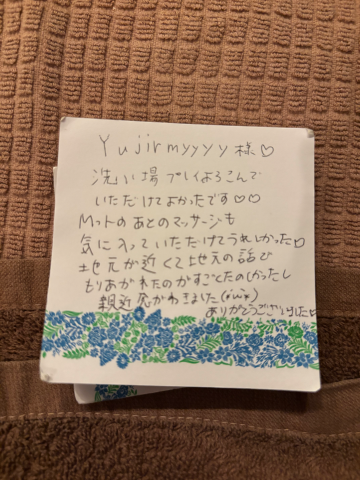 Yujirmyyyy様♡
洗い場プレイよろこんで
いただけてよかったです♡♡
Mットのあとのマッサージも
気に入っていただけてうれしかった♡
地元が近くて地元の話で
もりあがれたのがすごくたのしかったし
親近感がわきました(*´ω`*)
ありがとうございました♡